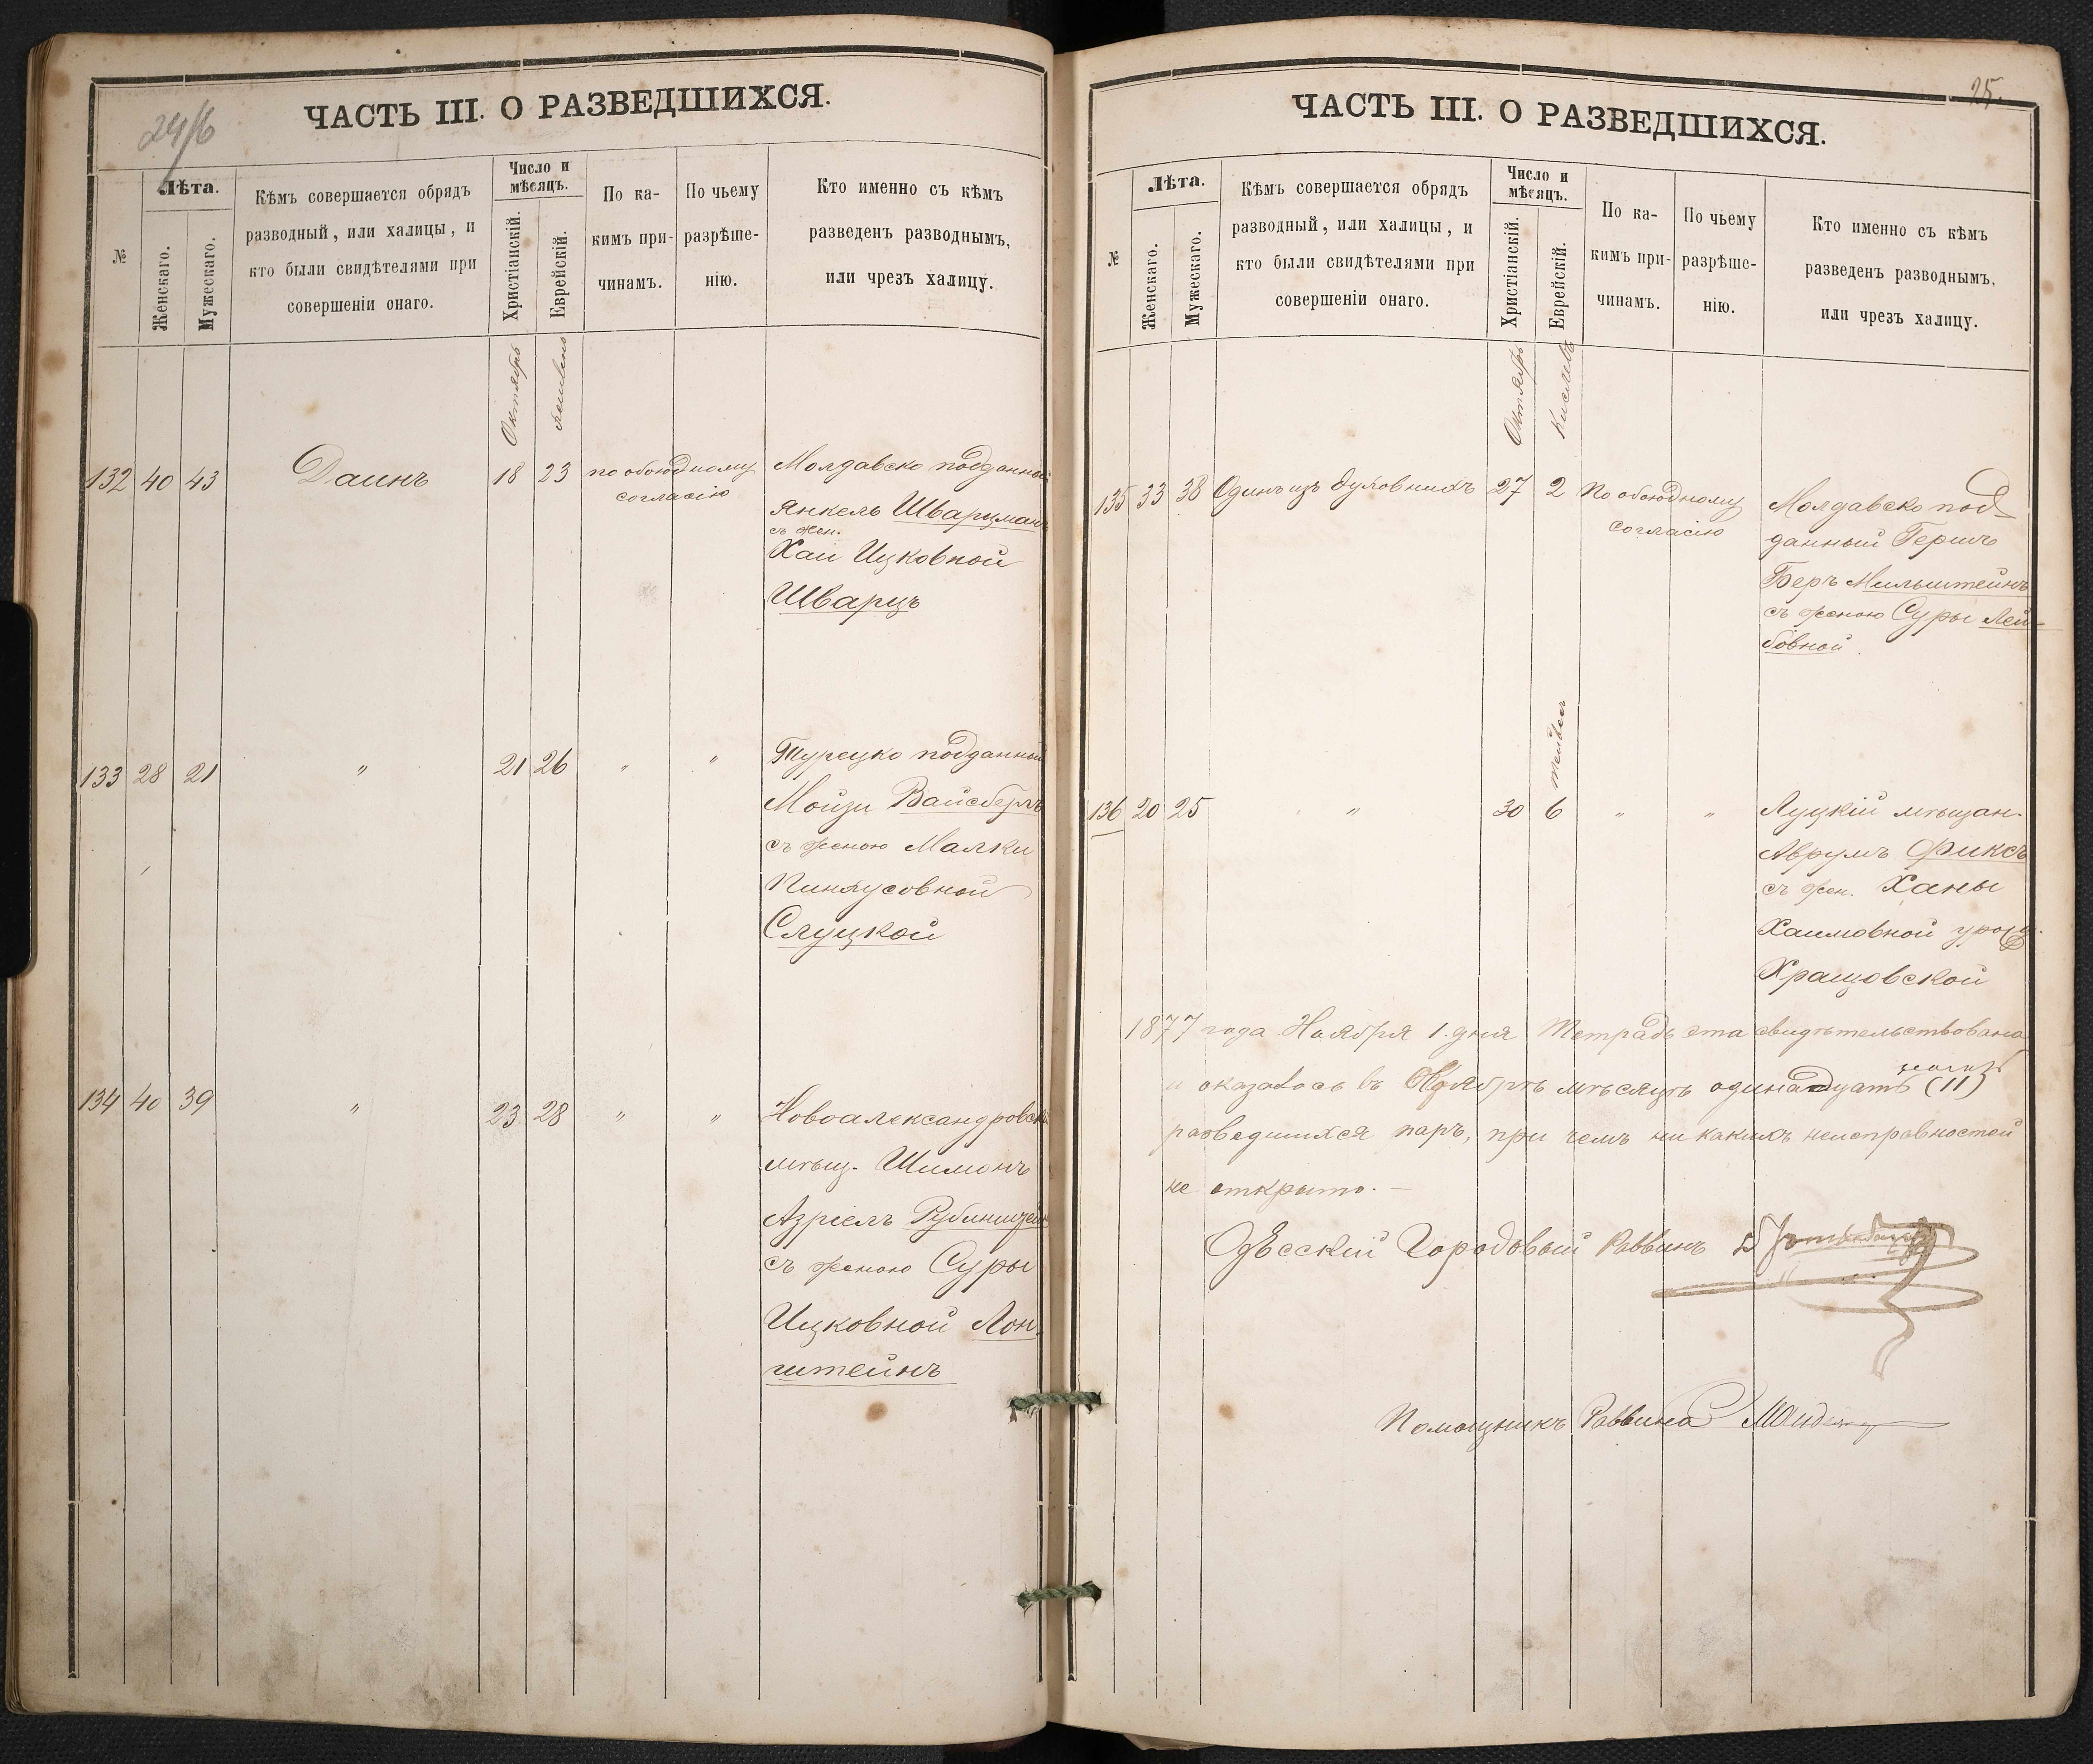 24/6
ЧАСТЬ III. О РАЗВЕДШИХСЯ.
№
Лѣта.
Женскаго.
Мужескаго.
Кѣмъ совершается обрядъ
разводный, или халицы, и
кто были свидѣтелями при
совершеніи онаго.
Число и
мѣсяцъ.
Христіанскій.
Еврейскій.
По ка-
кимъ при-
чинамъ.
По чьему
разрѣше-
нію.
Кто именно съ кѣмъ
разведенъ разводнымъ,
или чрезъ халицу.
Октябрь
132 40 43 Даинъ 18 23 по обоюдному
согласію
Молдавско подданный
Янкель Шварцманъ
съ жен.
Хаи Ицковной
Шварцъ
133 28 21 " 21 26 " "
Турецко подданный
Мойзи Вайсбергъ
съ женою Малки
Пинхусовной
Слуцкой
134 40 39 " 23 28 " "
Новоалександровск
мѣщ. Шимонъ
Азріелъ
съ женою Суры
Ицковной Лон-
штейнъ
25.
ЧАСТЬ III. О РАЗВЕДШИХСЯ.
№
Лѣта.
Женскаго.
Мужескаго.
Кѣмъ совершается обрядъ
разводный, или халицы, и
кто были свидѣтелями при
совершеніи онаго.
Число и
мѣсяцъ.
Христіанскій.
Еврейскій.
По ка-
кимъ при-
чинамъ.
По чьему
разрѣше-
нію.
Кто именно съ кѣмъ
разведенъ разводнымъ,
или чрезъ халицу.
Октябрь
Кислевъ
135 33 38 Одинъ изъ духовныхъ 27 2 По обоюдному
согласію
Молдавско под-
данный Гершъ
Беръ Мильштейнъ
съ женою Суры Лей-
бовной
136 20 25 " 30 6 " "
Луцкій мѣщан.
Аврумъ Фиксъ
съ жен. Ханы
Хаимовной урожд.
Хращовской
1877 года Ноября 1. дня Тетрадь эта свидѣтельствована
и оказалось въ Октябрѣ мѣсяцѣ одинадцать (11)
разведшихся паръ, при чемъ ни какихъ неисправностей
не открыто. —
Одѣсскій Городовый Раввинъ
Помощникъ Раввина